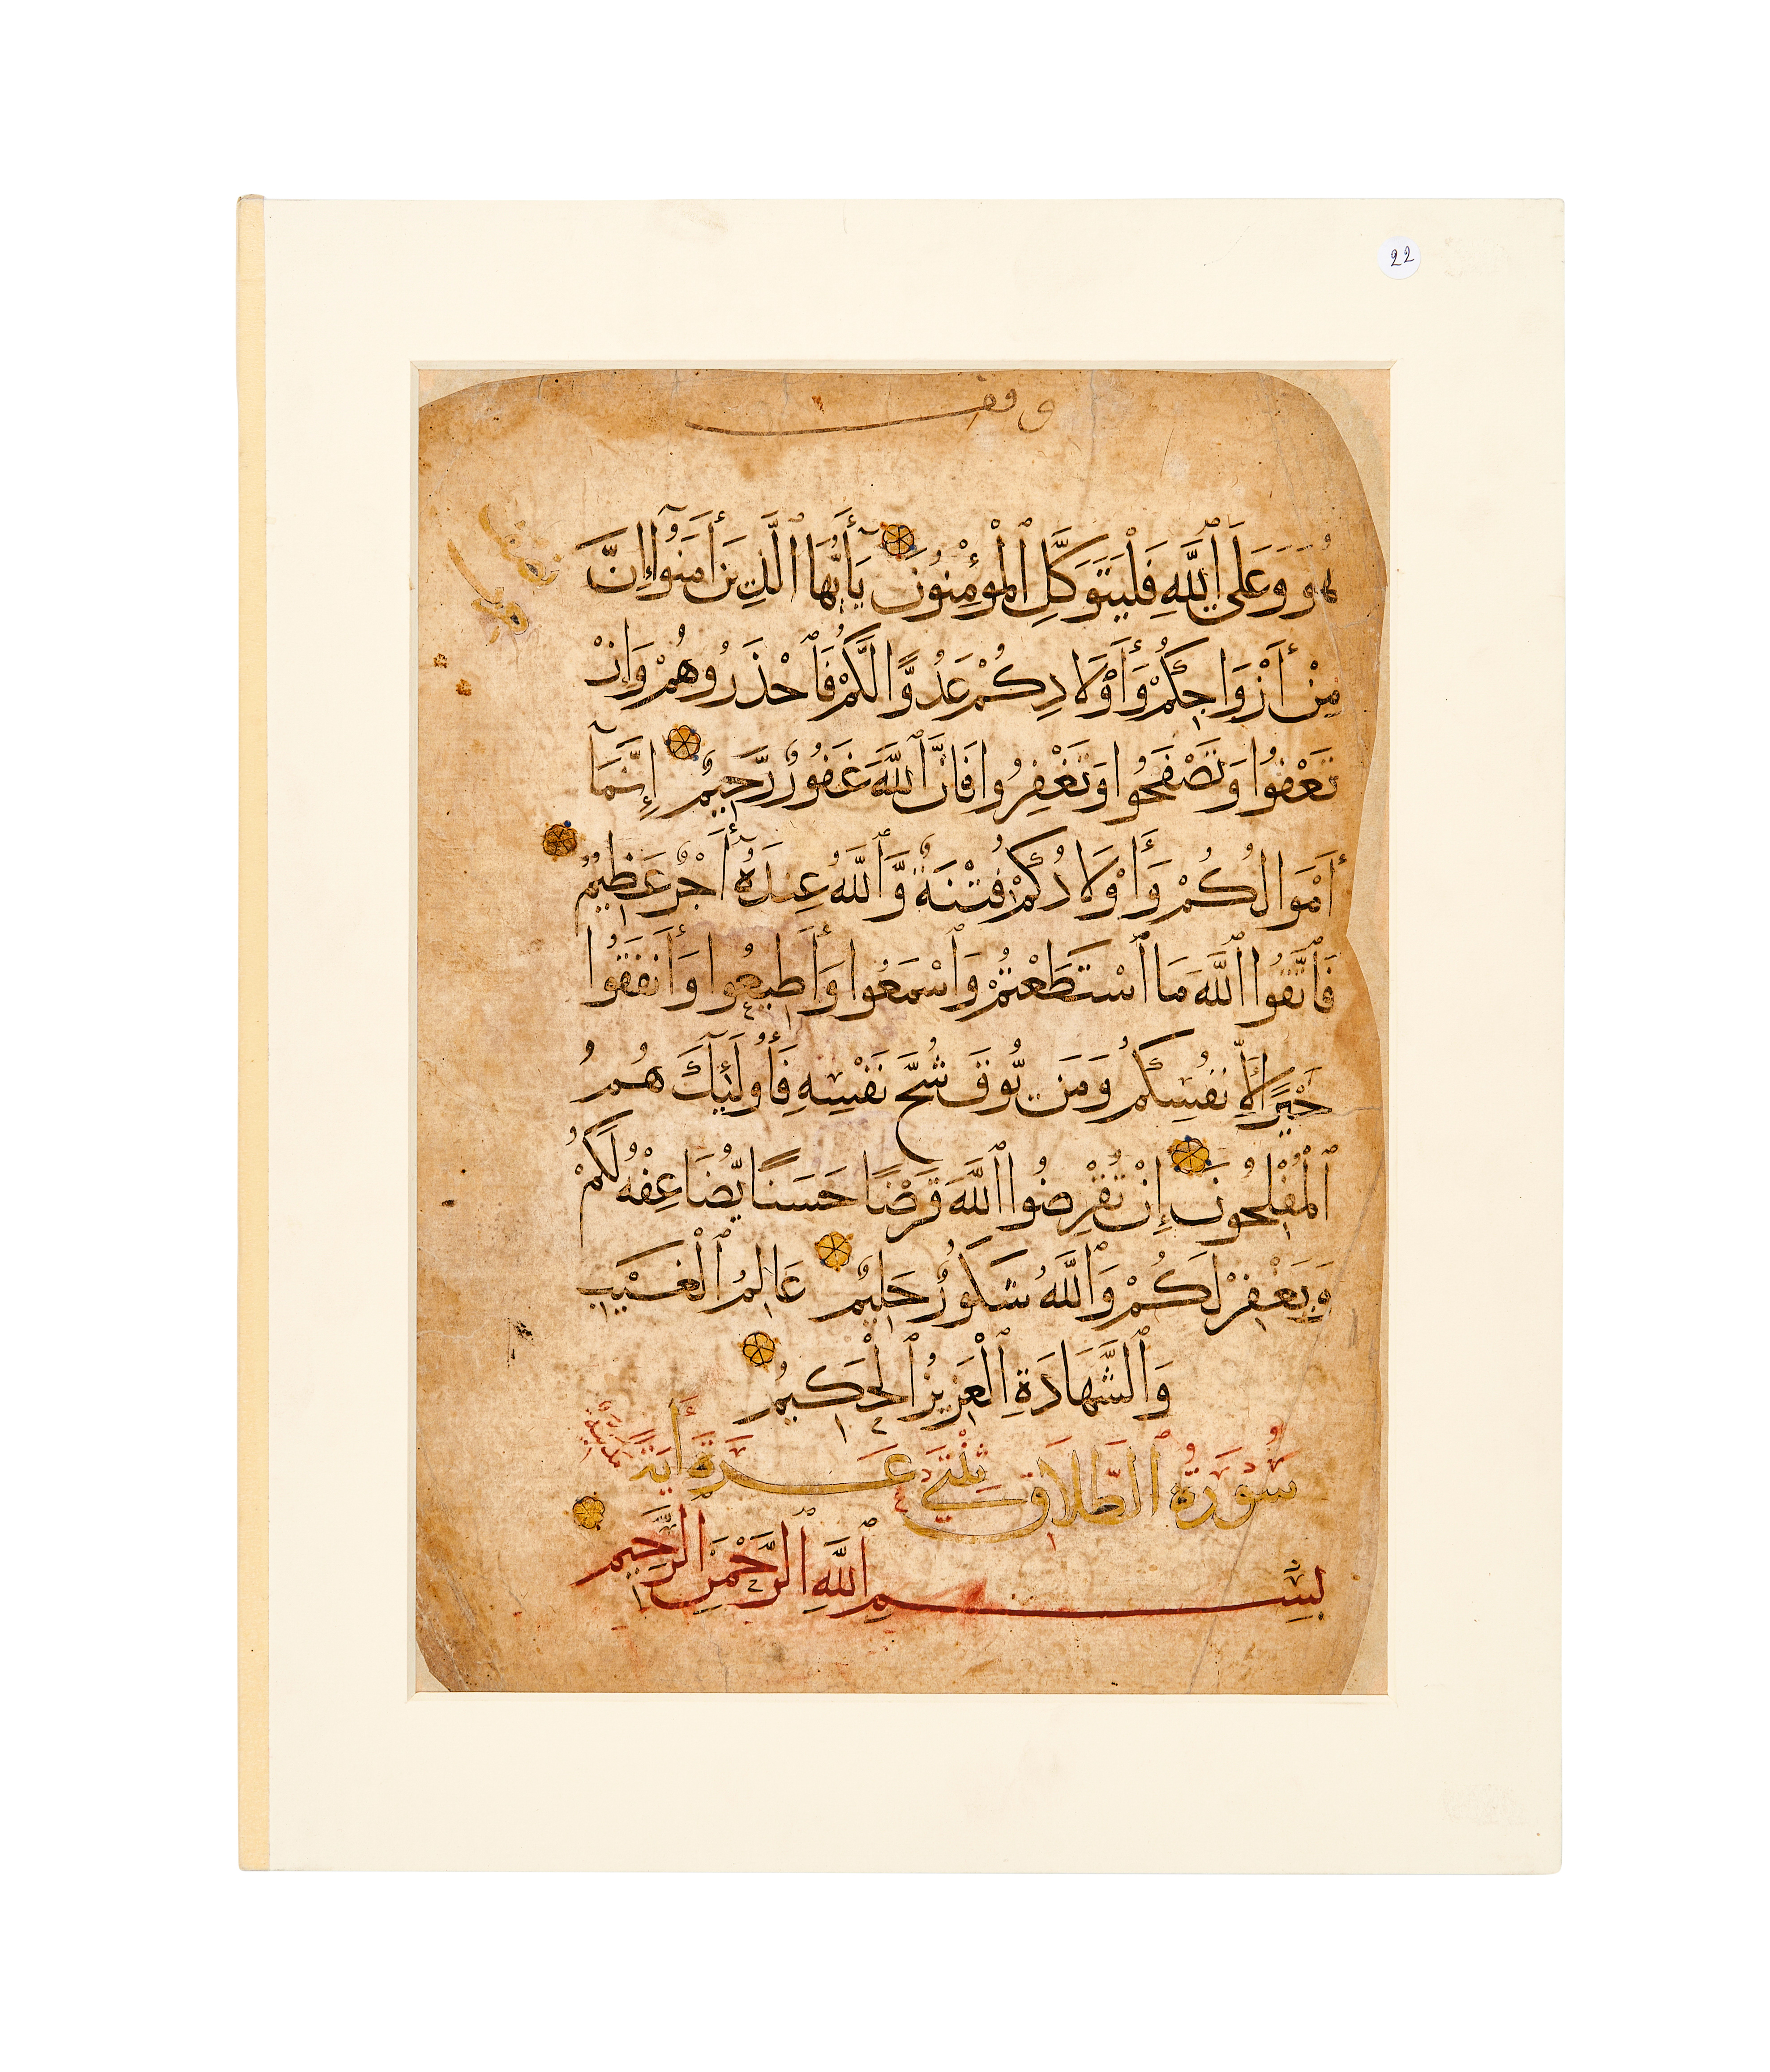 22
وقف
هُوَ وَعَلَى ٱللَّهِ فَلْيَتَوَكَّلِ ٱلْمُؤْمِنُونَ يَآأَيُّهَا ٱلَّذِينَ أَمَنُوٓا إِنَّ
مِنْ أَزْوَاجِكُمْ وَأَوْلَادِكُمْ عَدُوًّا لَّكُمْ فَٱحْذَرُوهُمْ وَإِنْ
تَعْفُوا وَتَصْفَحُوا وَتَغْفِرُوا فَإِنَّ ٱللَّهَ غَفُورٌ رَّحِيمٌ إِنَّمَآ
أَمْوَالُكُمْ وَأَوْلَادُكُمْ فِتْنَةٌ وَّٱللَّهُ عِندَهُٓ أَجْرٌ عَظِيمٌ
فَٱتَّقُوا ٱللَّهَ مَا ٱسْتَطَعْتُمْ وَٱسْمَعُوا وَأَطِيعُوا وَأَنفِقُوا
خَيْرًا لِّأَنفُسِكُمْ وَمَن يُّوقَ شُحَّ نَفْسِهِ فَأُولَٰٓئِكَ هُمُ
ٱلْمُفْلِحُونَ إِنْ تُقْرِضُوا ٱللَّهَ قَرْضًا حَسَنًا يُّضَاعِفْهُ لَكُمْ
وَيَغْفِرْ لَكُمْ وَٱللَّهُ شَكُورٌ حَلِيمٌ عَالِمُ ٱلْغَيْبِ
وَٱلشَّهَادَةِ ٱلْعَزِيزُ ٱلْحَكِيمُ
سُورَةُ ٱلطَّلَاقِ ثِنْتَيْ عَشْرَةَ أَيَةً مَدَنِيَّة
بِسْمِ ٱللَّهِ ٱلرَّحْمَنِ ٱلرَّحِيمِ